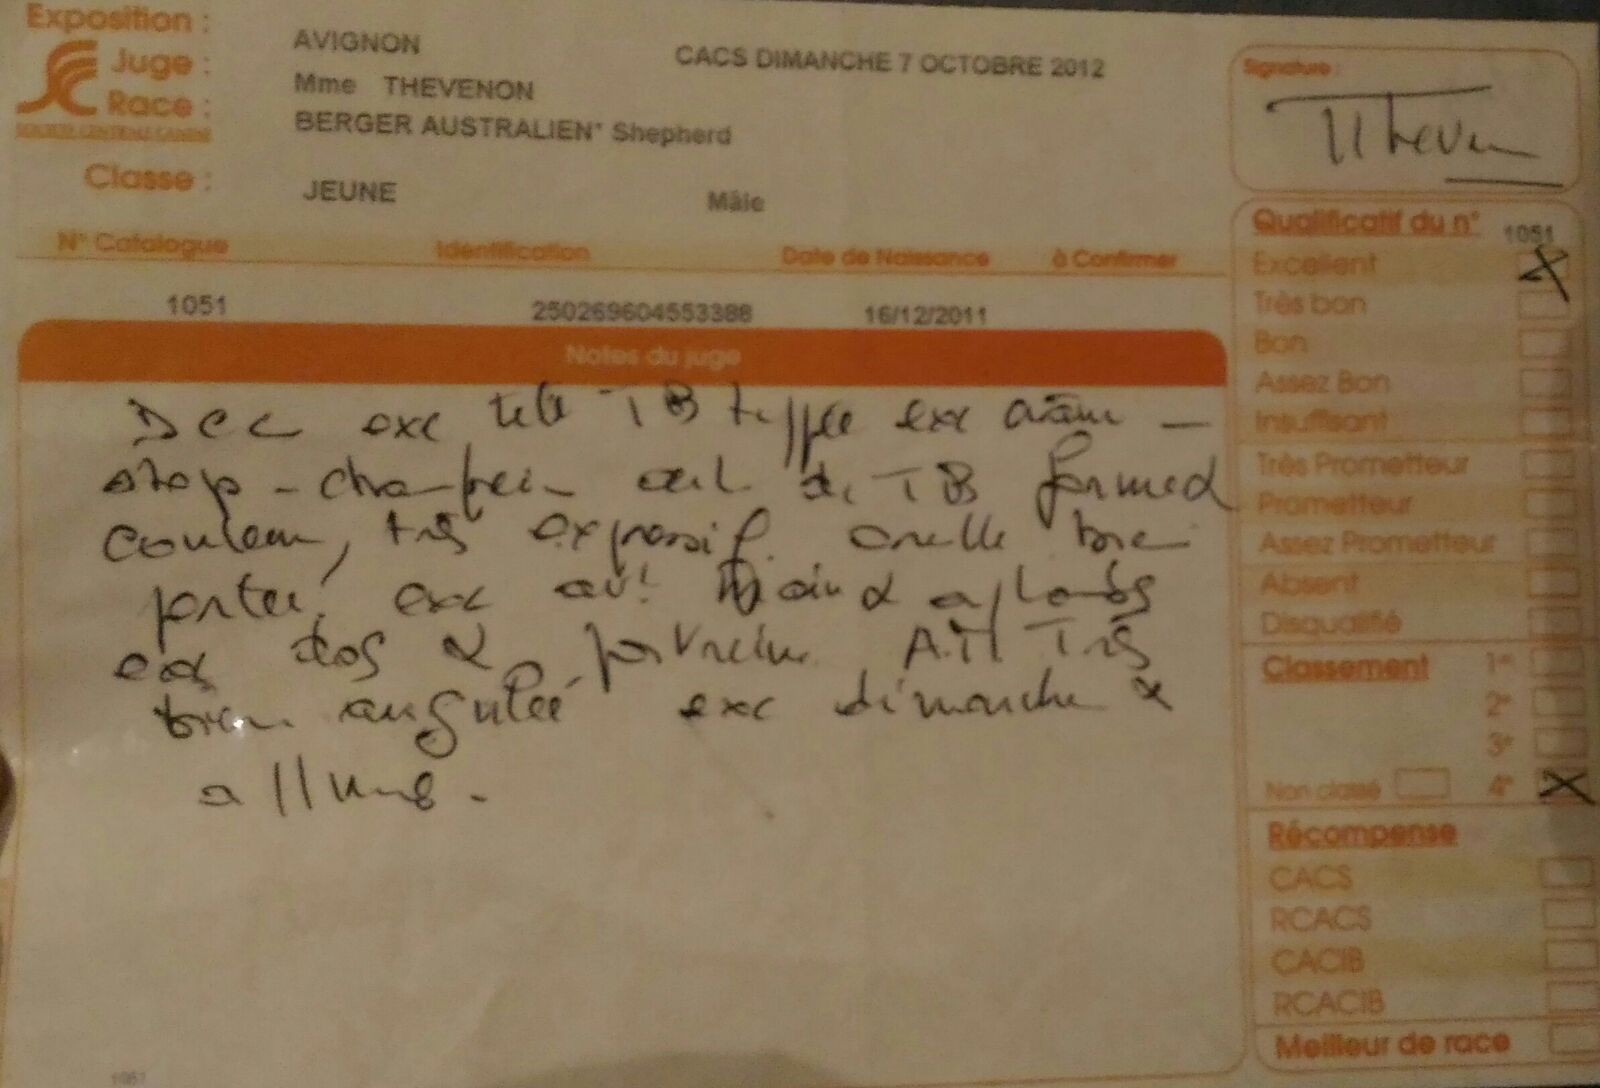 Exposition : AVIGNON CACS DIMANCHE 7 OCTOBRE 2012
Juge : Mme THEVENON
Race : BERGER AUSTRALIEN* Shepherd
SOCIETE CENTRALE CANINE
Classe : JEUNE Mâle
N° Catalogue Identification Date de Naissance à Confirmer
1051 250269604553388 16/12/2011
Notes du juge
Dcc exc tête TB typée exc crâne -
stop - chanfrein œil de TB forme &
couleur, très expressif. oreille bien
portée, exc av! main & aplombs
exc dos & poitrine AM Très
bien angulée exc démarche &
allures.
Signature :
Qualificatif du n° 1051
Excellent X
Très bon
Bon
Assez Bon
Insuffisant
Très Prometteur
Prometteur
Assez Prometteur
Absent
Disqualifié
Classement 1er
2e
3e
Non classé 4e X
Récompense
CACS
RCACS
CACIB
RCACIB
Meilleur de race
1051